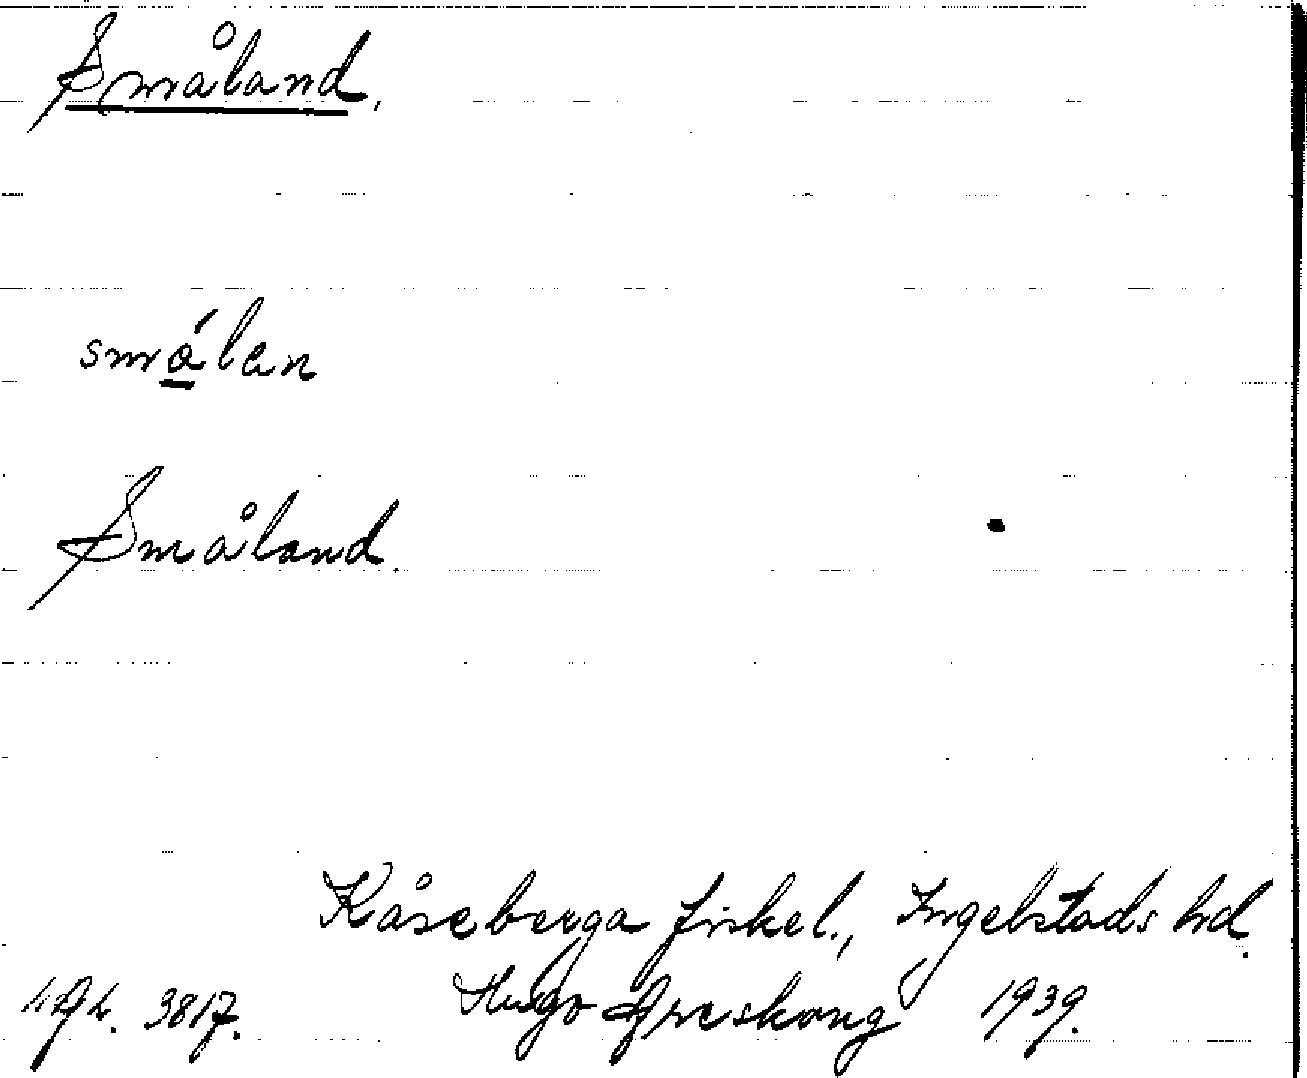 Småland.
smålan
Småland.
Kåseberga fiskel., Ingelstads hd.
3817. Hugo Areskoug 1939.